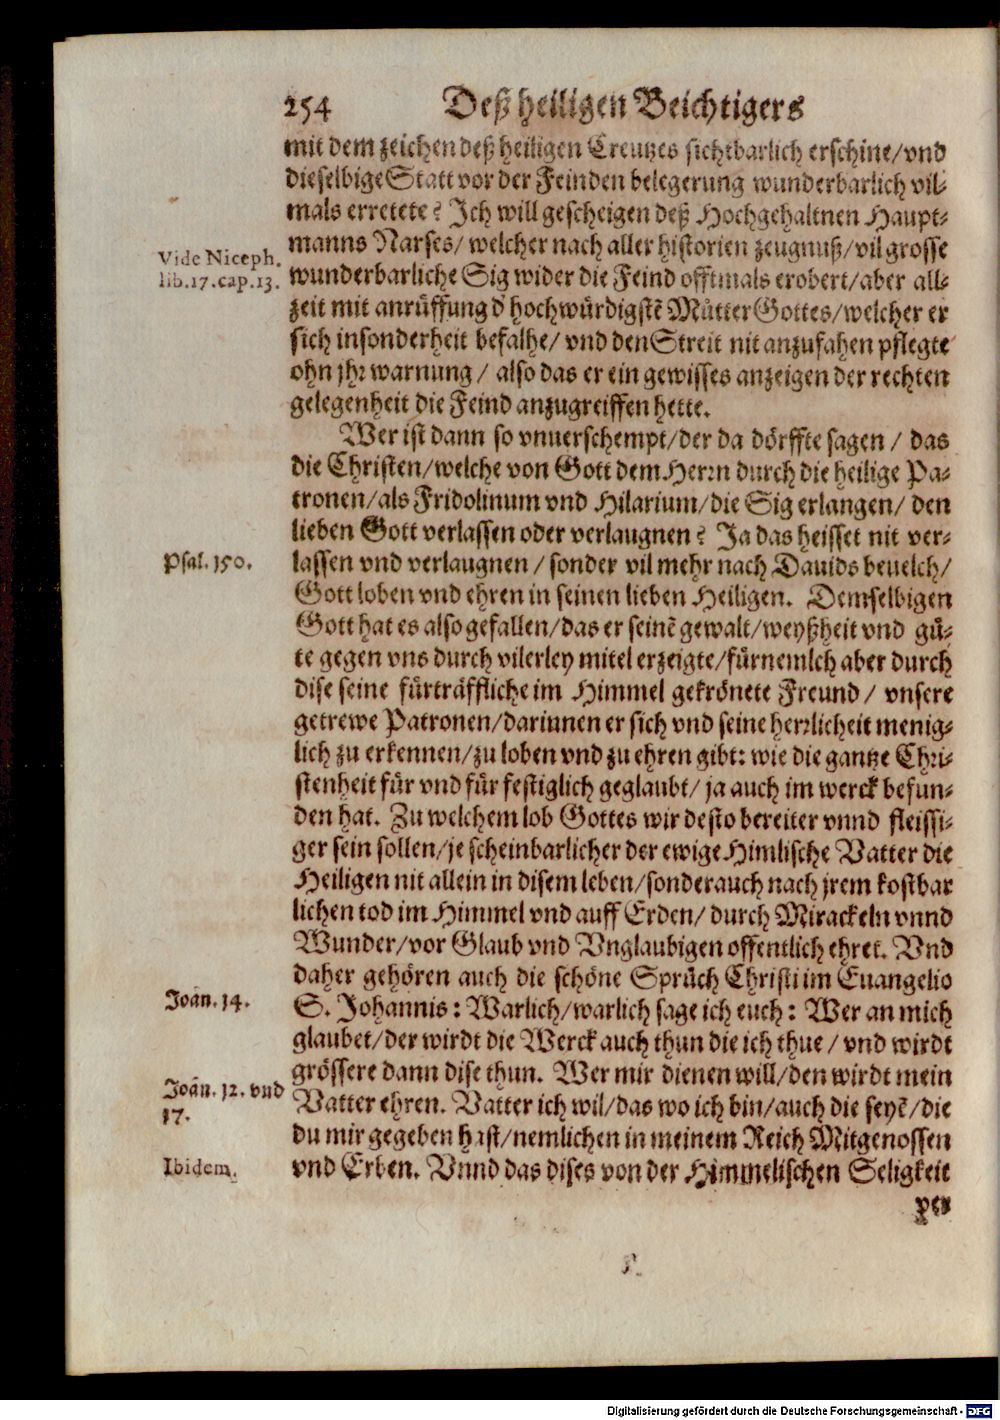 254 Deß heiligen Beichtigers
mit dem zeichen deß heiligen Creutzes sichtbarlich erschine/vnd
dieselbige Statt vor der Feinden belegerung wunderbarlich vil-
mals erretete? Ich will gescheigen deß Hochgehaltnen Haupt-
manns Narses/ welcher nach aller historien zeugnuß/vil grosse
Vide Niceph.
lib.17.cap.13.
wunderbarliche Sig wider die Feind offtmals erobert/aber all-
zeit mit anrüffung d' hochwürdigstẽ Mütter Gottes/welcher er
sich insonderheit befalhe/ vnd den Streit nit anzufahen pflegte
ohn jhr warnung / also das er ein gewisses anzeigen der rechten
gelegenheit die Feind anzugreiffen hette.
Wer ist dann so vnuerschempt/der da dörffte sagen / das
die Christen/welche von Gott dem Herrn durch die heilige Pa-
tronen/als Fridolinum vnd Hilarium/die Sig erlangen/ den
lieben Gott verlassen oder verlaugnen? Ja das heisset nit ver-
Psal.150.
lassen vnd verlaugnen / sonder vil mehr nach Dauids beuelch/
Gott loben vnd ehren in seinen lieben Heiligen. Demselbigen
Gott hat es also gefallen/das er seinẽ gewalt/weyßheit vnd gü-
te gegen vns durch vilerley mitel erzeigte/fürnemlch aber durch
dise seine fürträffliche im Himmel gekrönete Freund / vnsere
getrewe Patronen/darinnen er sich vnd seine herrlicheit menig-
lich zu erkennen/zu loben vnd zu ehren gibt: wie die gantze Chri-
stenheit für vnd für festiglich geglaubt/ ja auch im werck befun-
den hat. Zu welchem lob Gottes wir desto bereiter vnnd fleissi-
ger sein sollen/je scheinbarlicher der ewige Himlische Vatter die
Heiligen nit allein in disem leben/sonder auch nach jrem kostbar
lichen tod im Himmel vnd auff Erden/ durch Mirackeln vnnd
Wunder/vor Glaub vnd Vnglaubigen offentlich ehret. Vnd
daher gehören auch die schöne Sprüch Christi im Euangelio
Joan. 14.
S. Johannis: Warlich/warlich sage ich euch: Wer an mich
glaubet/der wirdt die Werck auch thun die ich thue / vnd wirdt
grössere dann dise thun. Wer mir dienen will/den wirdt mein
Joan. 12. vnd
17.
Vatter ehren. Vatter ich wil/das wo ich bin/auch die seyẽ/die
du mir gegeben hast/nemlichen in meinem Reich Mitgenossen
Ibidem.
vnd Erben. Vnnd das dises von der Himmelischen Seligkeit
Digitalisierung gefördert durch die Deutsche Forschungsgemeinschaft - DFG